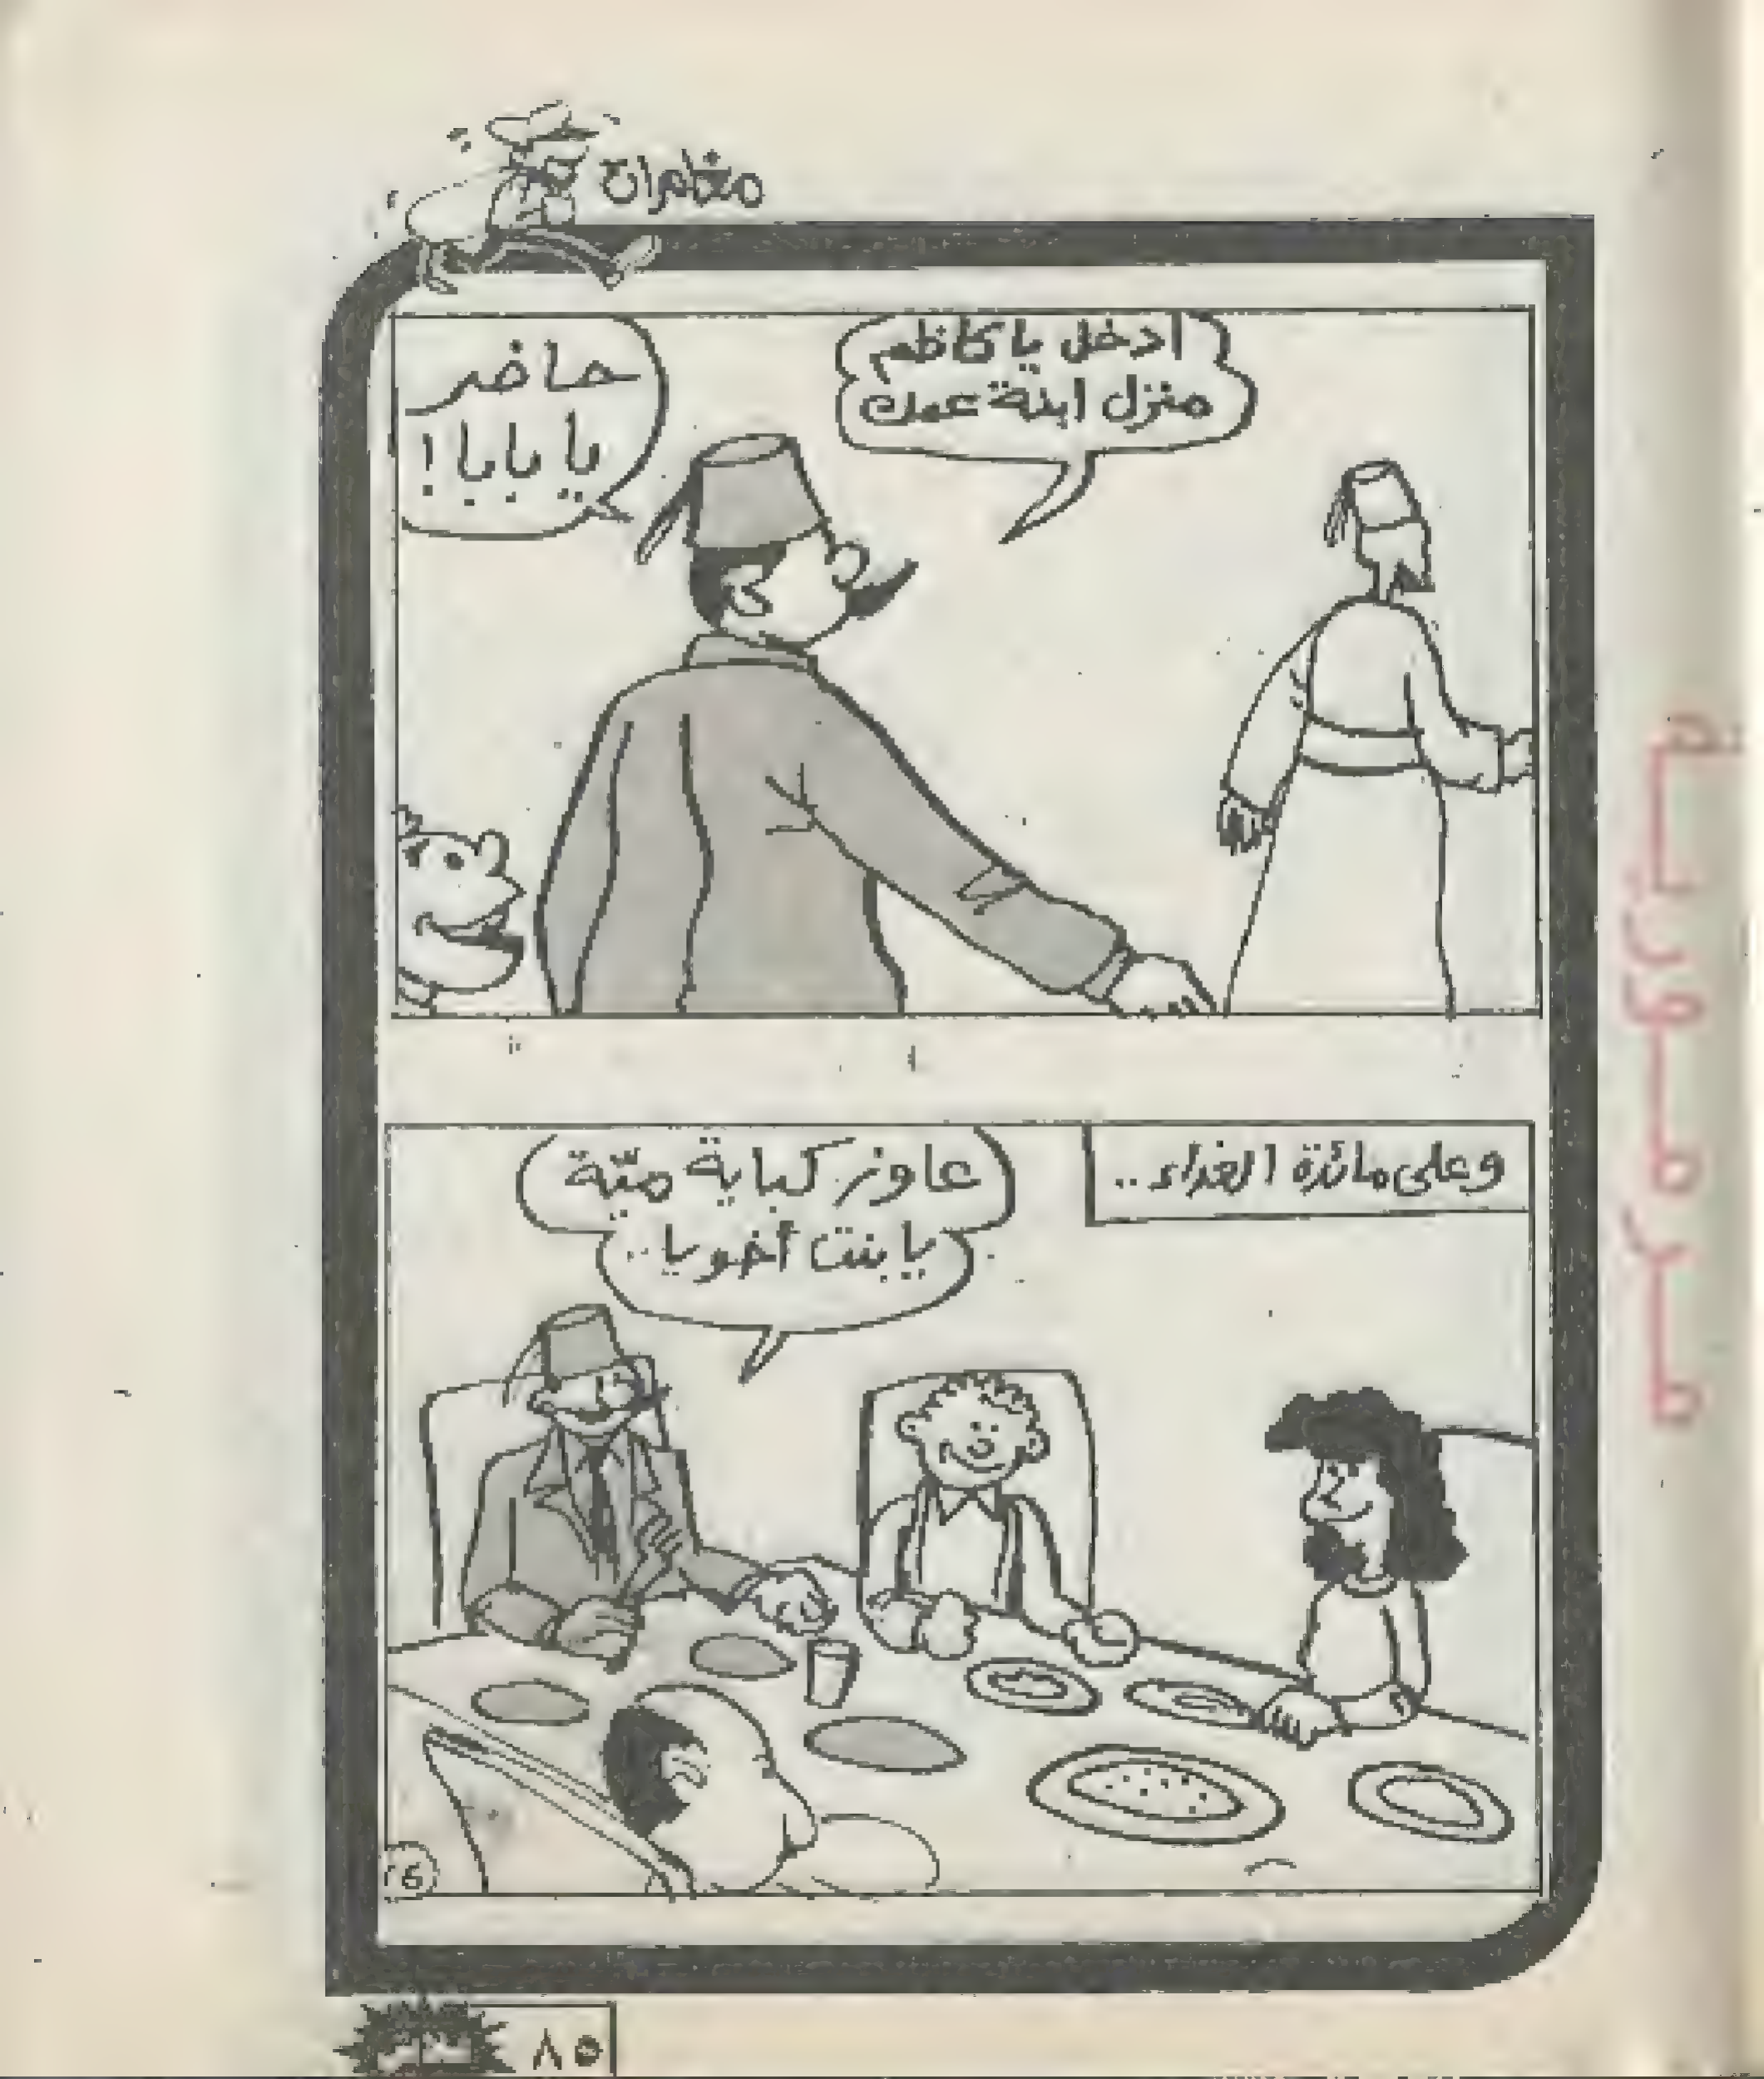 مغامرات
أدخل يا كاظم
منزل ابنة عمك
حاضر
يا بابا !
وعلى مائدة الغداء ..
عاوز كباية ميّة
يا بنت أخويا ..
6
٨٥